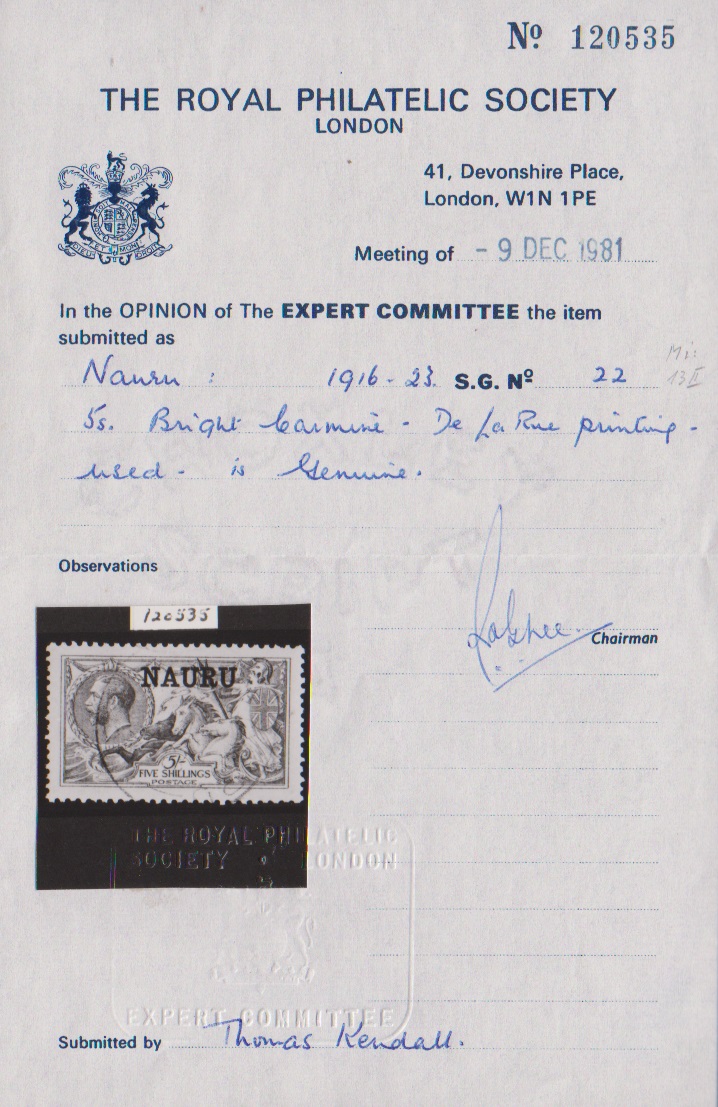 Nº 120535
THE ROYAL PHILATELIC SOCIETY
LONDON
41, Devonshire Place,
London, W1N 1PE
Meeting of - 9 DEC 1981
In the OPINION of The EXPERT COMMITTEE the item
submitted as
Mi:
Nauru : 1916-23. S.G. Nº 22 13 II
5s. Bright Carmine - De La Rue printing -
used - is Genuine.
Observations
120535
Chairman
NAURU
5/-
FIVE SHILLINGS
POSTAGE
THE ROYAL PHILATELIC
SOCIETY LONDON
EXPERT COMMITTEE
Submitted by Thomas Kendall.